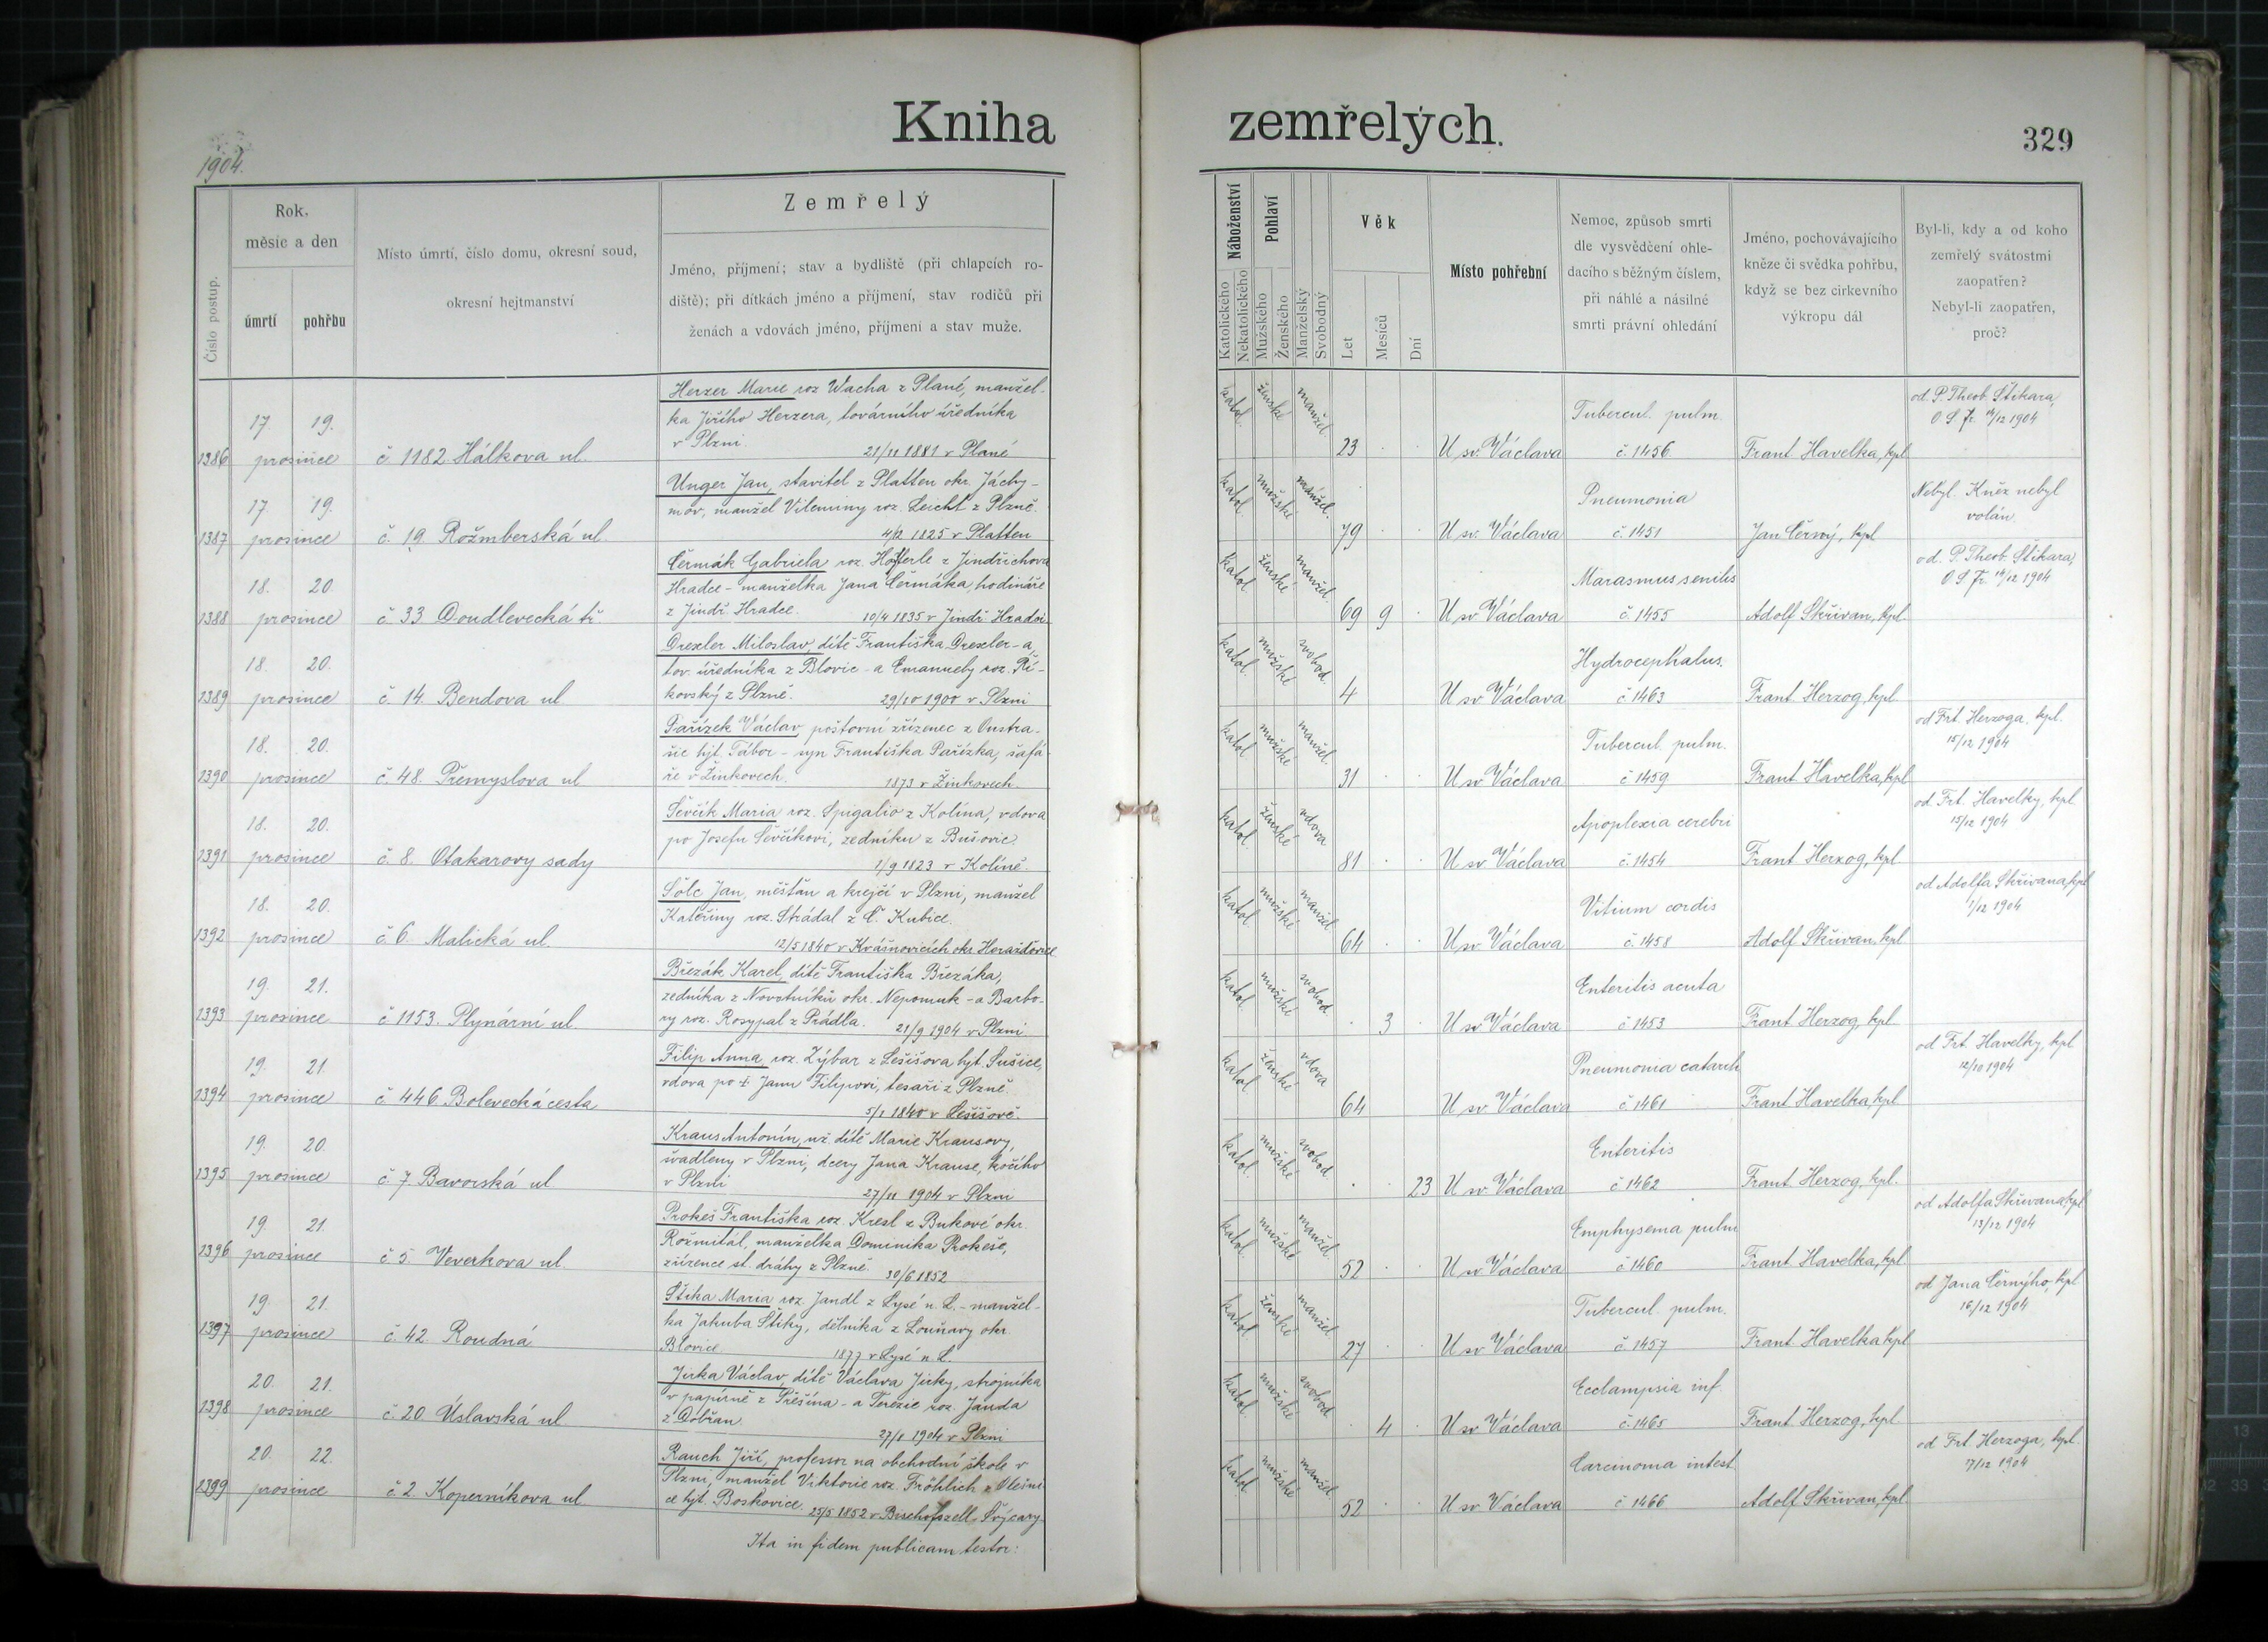 Kniha
zemřelých.
329
1904.
Číslo postup.
Rok,
měsíc a den
úmrtí
pohřbu
Místo úmrtí, číslo domu, okresní soud,
okresní hejtmanství
Zemřelý
Jméno, příjmení; stav a bydliště (při chlapcích ro-
diště); při dítkách jméno a příjmení, stav rodičů při
ženách a vdovách jméno, příjmení a stav muže.
Náboženství
Katolického
Nekatolického
Pohlaví
Mužského
Ženského
Manželský
Svobodný
Věk
Let
Mesíců
Dní
Místo pohřební
Nemoc, způsob smrti
dle vysvědčení ohle-
dacího s běžným číslem,
při náhlé a násilné
smrti právní ohledání
Jméno, pochovávajícího
kněze či svědka pohřbu,
když se bez církevního
výkropu dál
Byl-li, kdy a od koho
zemřelý svátostmi
zaopatřen?
Nebyl-li zaopatřen,
proč?
1386
17 19.
prosince
č. 1182. Hálkova ul.
Herzer Marie roz. Wacha z Plané, manžel-
ka Jiřího Herzera, továrního úředníka
v Plzni.
21/11 1881 v Plané
katol. ženské manžel.
23
U sv. Václava
Tubercul. pulm.
č. 1456
Frant. Havelka, kpl.
od P. Theob. Štikara,
O. S. Fr. 14/12 1904
1387
17. 19.
prosince
č. 19. Rožmberská ul.
Unger Jan, stavitel z Platten okr. Jáchy-
mov, manžel Vilemíny roz. Leicht z Plzně.
4/2 1825 v Platten
katol. mužské manžel.
79
U sv. Václava
Pneumonia
č. 1451
Jan Černý, kpl.
Nebyl. Kněz nebyl
volán.
1388
18. 20
prosince
č. 33 Doudlevecká tř.
Čermák Gabriela roz. Höfferle z Jindřichova
Hradce - manželka Jana Čermáka, hodináře
z Jindř. Hradce.
10/4 1835 v Jindř. Hradci
katol. ženské manžel.
69 9
U sv. Václava
Marasmus senilis
č. 1455
Adolf Skřivan, kpl.
od P. Theob. Štikara,
O. S. Fr. 14/12 1904
1389
18. 20.
prosince
č. 14. Bendova ul.
Drexler Miloslav, dítě Františka Drexler-a,
tov. úředníka z Blovic - a Emanuely roz. Ři-
kovský z Plzně.
29/10 1900 v Plzni
katol. mužské svobod.
4
U sv. Václava
Hydrocephalus.
č. 1463
Frant. Herzog, kpl.
1390
18. 20.
prosince
č. 48. Přemyslova ul
Pařízek Václav, poštovní zřízenec z Oustra-
šic hjt. Tábor - syn Františka Pařízka, šafá-
ře v Žinkovech.
1873 v Žinkovech.
katol. mužské manžel.
31
U sv. Václava
Tubercul. pulm.
č. 1459
Frant. Havelka, kpl
od Frt. Herzoga, kpl.
15/12 1904
1391
18. 20.
prosince
č. 8. Otakarovy sady
Ševčík Maria roz. Spigalio z Kolína, vdova
po Josefu Ševčíkovi, zedníku z Bušovic.
1/9 1823 v Kolíně.
katol. ženské vdova
81
U sv. Václava
Apoplexia cerebri
č. 1454
Frant. Herzog, kpl
od Frt. Havelky, kpl.
15/12 1904
1392
18. 20.
prosince
č. 6. Malická ul.
Šolc Jan, měšťan a krejčí v Plzni, manžel
Kateřiny roz. Strádal z Č. Kubice.
12/5 1840 v Kvášňovicích okr. Horažďovice
katol. mužské manžel
64
U sv. Václava
Vitium cordis
č. 1458
Adolf Skřivan, kpl
od Adolfa Skřivana, kpl
1/12 1904
1393
19. 21.
prosince
č. 1153. Plynární ul.
Březák Karel, dítě Františka Březáka,
zedníka z Novotníků okr. Nepomuk - a Barbo-
ry roz. Rosypal z Prádla.
21/9 1904 v Plzni
katol. mužské svobod.
3
U sv. Václava
Enteritis acuta
č. 1453
Frant. Herzog, kpl.
1394
19. 21.
prosince
č. 446. Bolevecká cesta
Filip Anna roz. Zýbar z Lešišova, hjt. Sušice,
vdova po † Janu Filipovi, tesaři z Plzně.
5/1 1840 v Lešišově.
katol. ženské vdova
64
U sv. Václava
Pneumonia catarrh
č. 1461
Frant. Havelka, kpl
od Frt. Havelky, kpl
12/10 1904
1395
19. 20.
prosince
č. 7. Bavorská ul
Kraus Antonín, nz. dítě Marie Krausovy,
švadleny v Plzni, dcery Jana Krause, kočího
v Plzni
27/11 1904 v Plzni
katol. mužské svobod.
23
U sv. Václava
Enteritis
č. 1462
Frant. Herzog, kpl.
1396
19 21
prosince
č. 5. Veverkova ul
Prokeš Františka roz. Kresl z Bukové okr.
Rožmitál, manželka Dominika Prokeše,
zřízence st. dráhy z Plzně.
30/6 1852
katol. mužské manžel.
52
U sv. Václava
Emphysema pulm
č. 1460
Frant. Havelka, kpl.
od Adolfa Skřivana, kpl
13/12 1904
1397
19. 21.
prosince
č. 42. Roudná
Štika Maria roz. Jandl z Lysé n. L. - manžel-
ka Jakuba Štiky, dělníka z Louňavy okr.
Blovice.
1877 v Lysé n. L.
katol. ženské manžel.
27
U sv. Václava
Tubercul. pulm.
č. 1457
Frant. Havelka kpl
od Jana Černýho, kpl
16/12 1904
1398
20. 21.
prosince
č. 20. Úslavská ul
Jirka Václav, dítě Václava Jirky, strojníka
v papírně z Střešína - a Terezie roz. Janda
z Dobřan.
27/8 1904 v Plzni
katol. mužské svobod.
4
U sv. Václava
Ecclampsia inf.
č. 1465
Frant. Herzog, kpl
1399
20. 22.
prosince
č. 2. Koperníkova ul.
Rauch Jiří, professor na obchodní škole v
Plzni, manžel Viktorie roz. Fröhlich z Olešni-
ce hjt. Boskovice.
25/5 1852 v Bischofszell, Švýcary
katol. mužské manžel.
52
U sv. Václava
Carcinoma intest
č. 1466
Adolf Skřivan, kpl.
od Frt. Herzoga, kpl.
7/12 1904
Ita in fidem publicam testor: